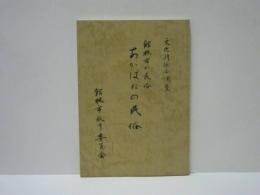 文化財総合調査
館林市の民俗
あかばねの民俗
館林市教育委員会